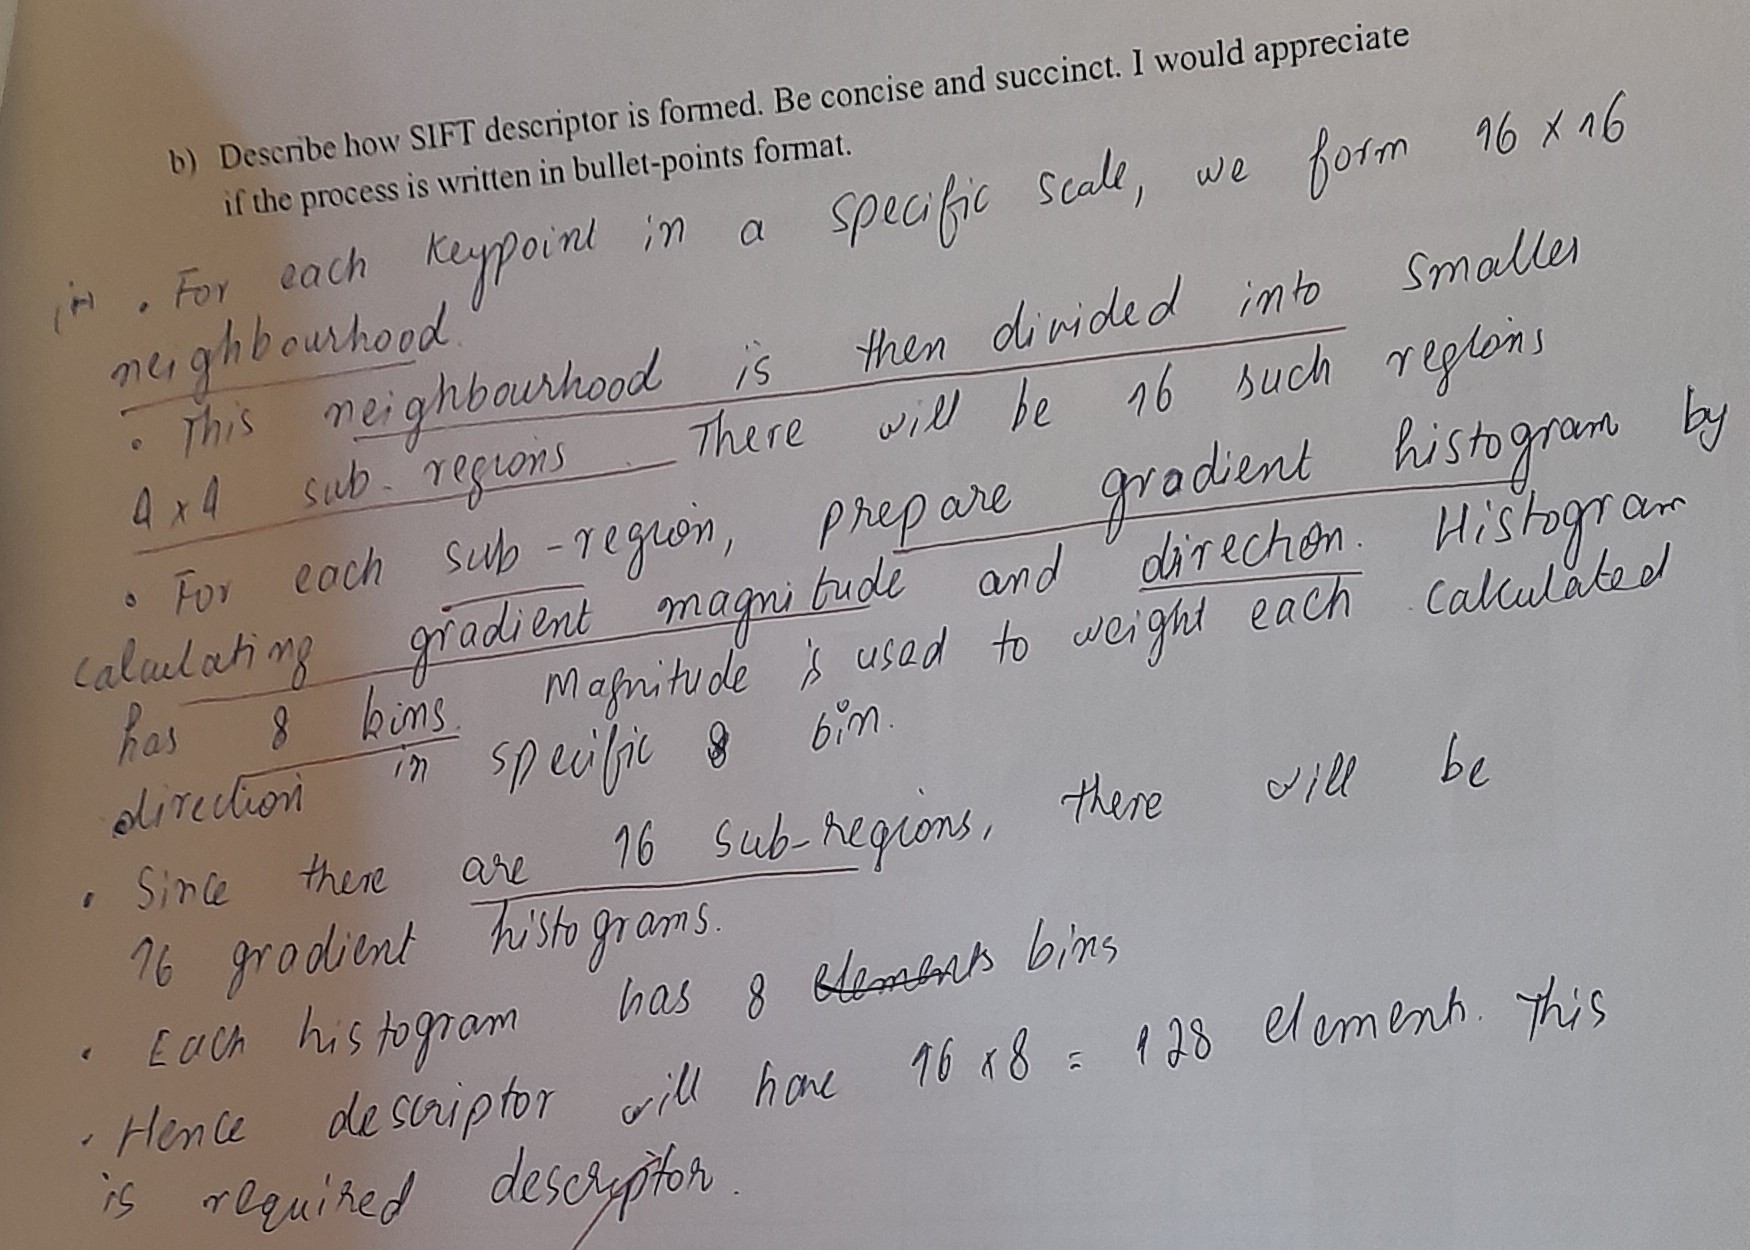 b) Describe how SIFT descriptor is formed. Be concise and succinct. I would appreciate
if the process is written in bullet-points format.
• For each keypoint in a specific scale, we form 16 x 16
neighbourhood.
• This neighbourhood is then divided into smaller
4 x 4 sub-regions. There will be 16 such regions
• For each sub-region, prepare gradient histogram by
calculating gradient magnitude and direction. Histogram
has 8 bins. Magnitude is used to weight each calculated
direction in specific bin.
• Since there are 16 sub-regions, there will be
16 gradient histograms.
• Each histogram has 8 elements bins
• Hence descriptor will have 16 x 8 = 128 elements. This
is required descriptor.